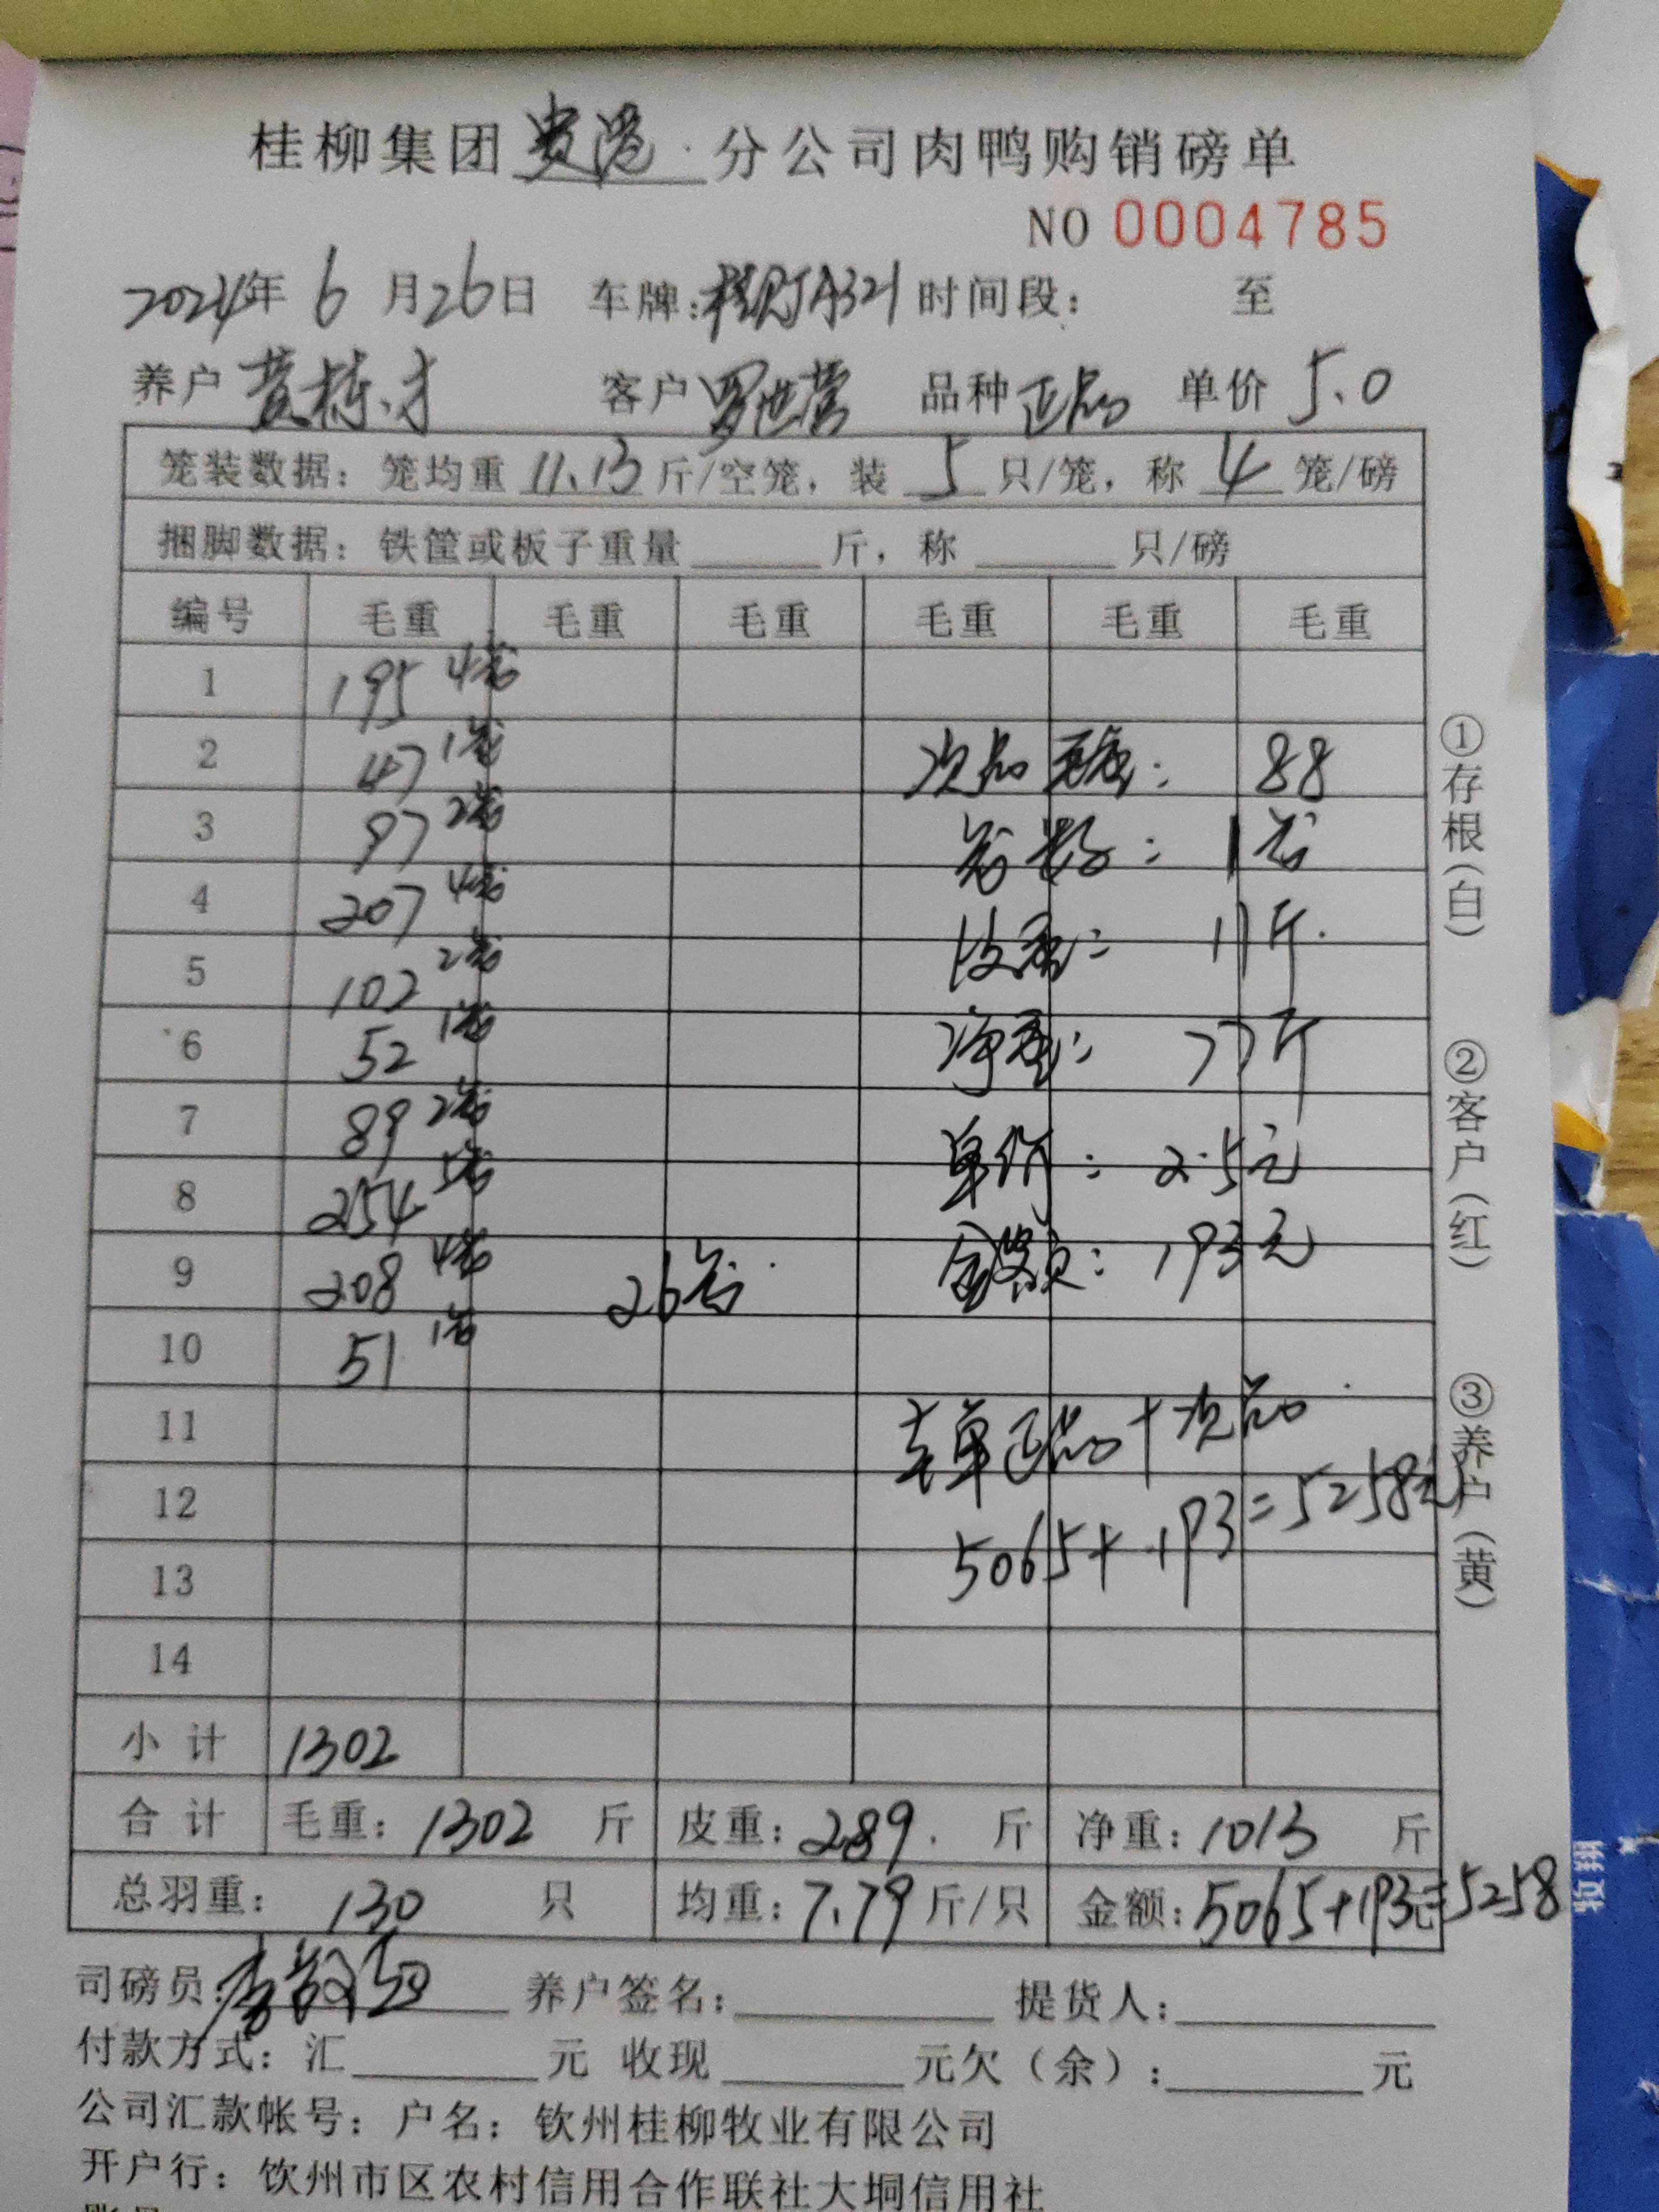 桂柳集团贵港分公司肉鸭购销磅单
NO 0004785
2024年 6 月26日 车牌: 时间段: 至
养户 黄栋才 客户 罗世营 品种 正品 单价 5.0
笼装数据: 笼均重 11.13 斤/空笼, 装 5 只/笼, 称 4 笼/磅
捆脚数据: 铁筐或板子重量 斤, 称 只/磅
编号 毛重 毛重 毛重 毛重 毛重 毛重
1 195 4笼
2 47 1笼 次品 毛重: 88
3 97 2笼 笼数: 1笼
4 207 4笼
5 102 2笼 皮重: 11斤.
6 52 1笼 净重: 77斤
7 89 2笼
8 254 5笼 单价: 2.5元
9 208 4笼 26笼 金额: 193元
10 51 1笼
11 本单正品+次品
12 5065+193=5258元
13
14
小计 1302
合计 毛重: 1302 斤 皮重: 289. 斤 净重: 1013 斤
总羽重: 130 只 均重: 7.79 斤/只 金额: 5065+193元=5258
司磅员: 养户签名: 提货人:
付款方式: 汇 元 收现 元欠(余): 元
公司汇款帐号: 户名: 钦州桂柳牧业有限公司
开户行: 饮州市区农村信用合作联社大垌信用社
①存根(白)
②客户(红)
③养户(黄)